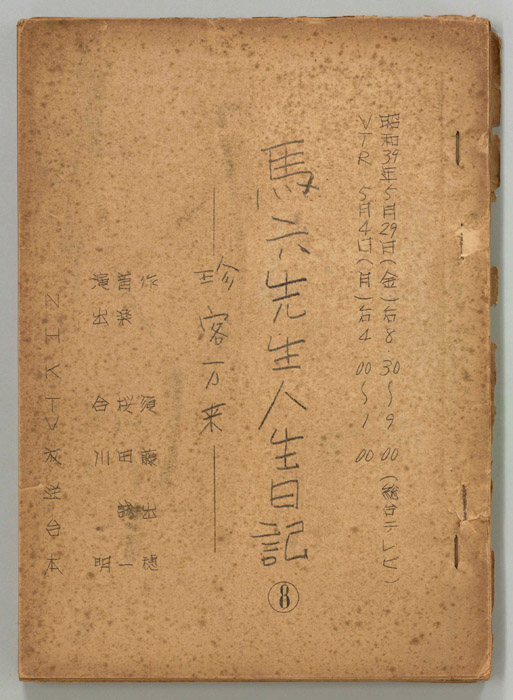 昭和39年5月29日(金)后8 30〜9 00(総合テレビ)
VTR 5月4日(月)后4 00〜1 00
馬六先生人生日記 ⑧
― 珍客万来 ―
作 須藤出穂
音楽 桜田誠一
演出 合川明
NHKTV放送台本